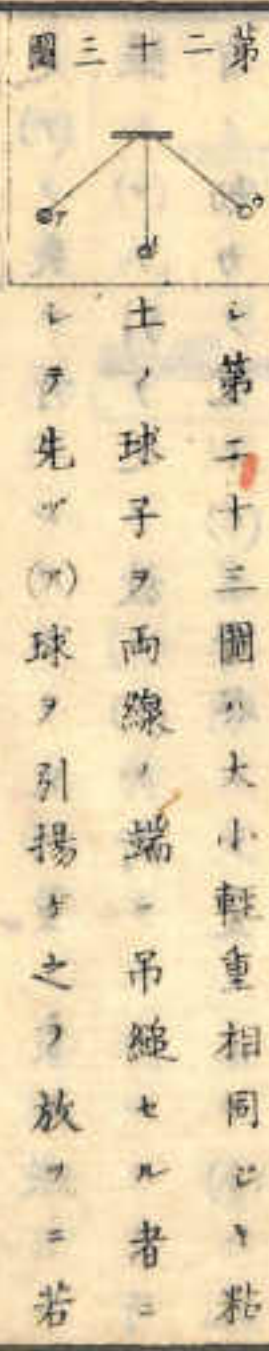 第二十三圖
シ第二十三圖ハ大小軽重相同ジキ粘
土ノ球子ヲ両線ノ端ニ吊縋セル者ニ
シテ先ヅ(ア)球ヲ引揚ゲ之ヲ放ツニ若